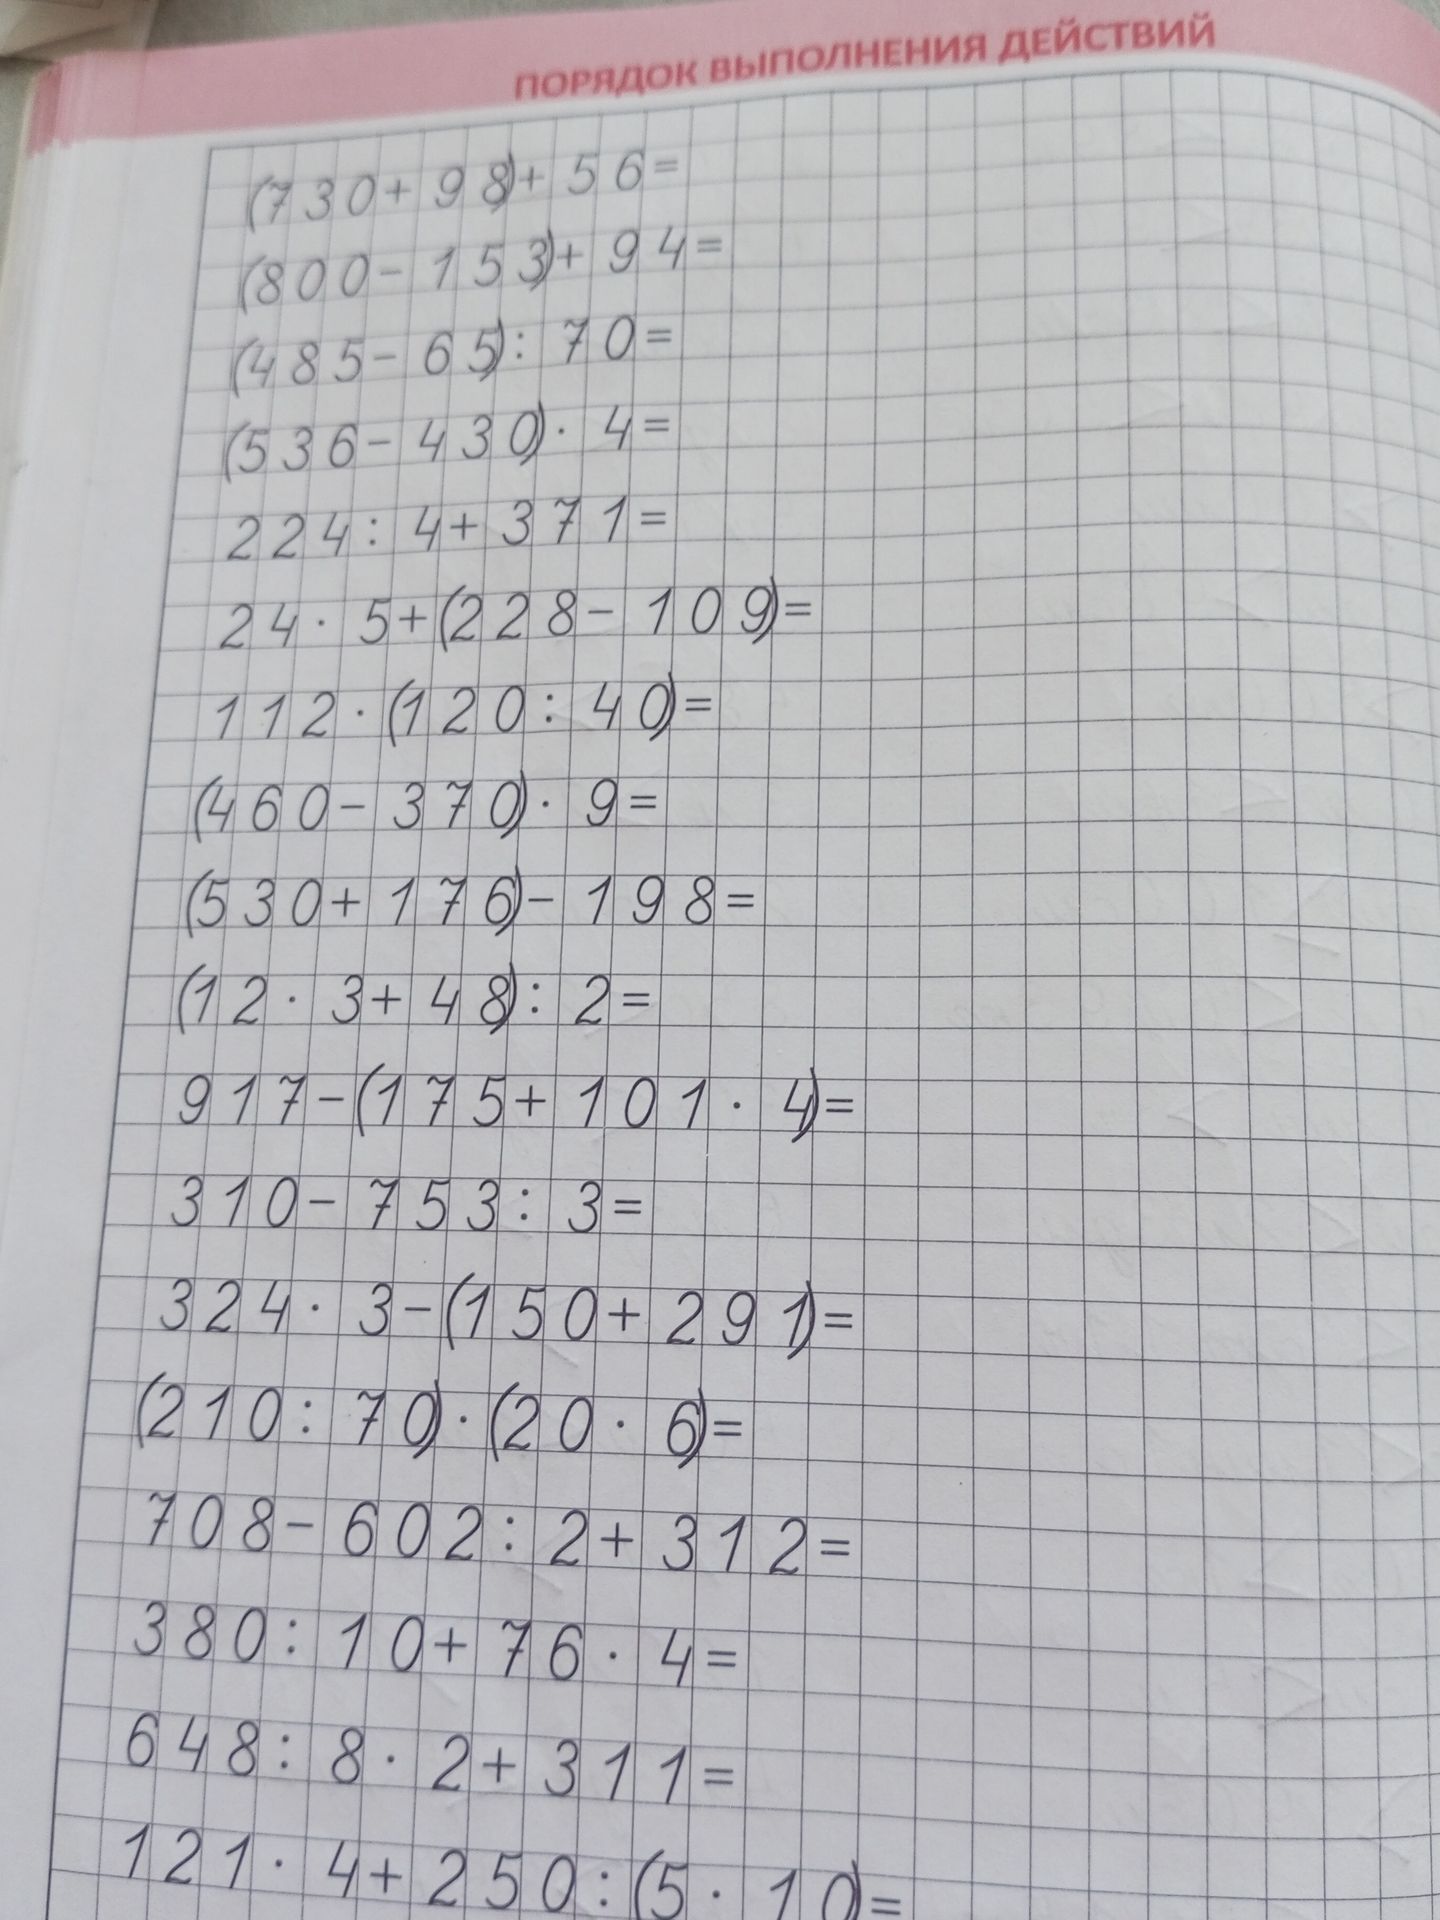 ПОРЯДОК ВЫПОЛНЕНИЯ ДЕЙСТВИЙ
(730+98)+56=
(800-153)+94=
(485-65):70=
(536-430)·4=
224:4+371=
24·5+(228-109)=
112·(120:40)=
(460-370)·9=
(530+176)-198=
(12·3+48):2=
917-(175+101·4)=
310-753:3=
324·3-(150+291)=
(210:70)·(20·6)=
708-602:2+312=
380:10+76·4=
648:8·2+311=
121·4+250:(5·10)=